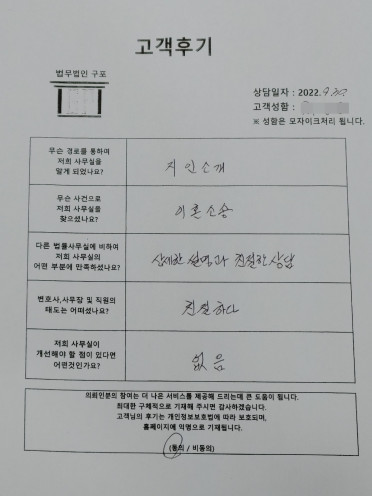 고객후기
법무법인 구포
상담일자 : 2022. 9. 30
고객성함 :
※ 성함은 모자이크처리 됩니다.
무슨 경로를 통하여
저희 사무실을
알게 되었나요?
지인소개
무슨 사건으로
저희 사무실을
찾으셨나요?
이혼소송
다른 법률사무실에 비하여
저희 사무실의
어떤 부분에 만족하셨나요?
상세한 설명과 친절한 상담
변호사,사무장 및 직원의
태도는 어떠셨나요?
친절하다
저희 사무실이
개선해야 할 점이 있다면
어떤것인가요?
없음
의뢰인분의 참여는 더 나은 서비스를 제공해 드리는데 큰 도움이 됩니다.
최대한 구체적으로 기재해 주시면 감사하겠습니다.
고객님의 후기는 개인정보보호법에 따라 보호되며,
홈페이지에 익명으로 기재됩니다.
(동의 / 비동의)